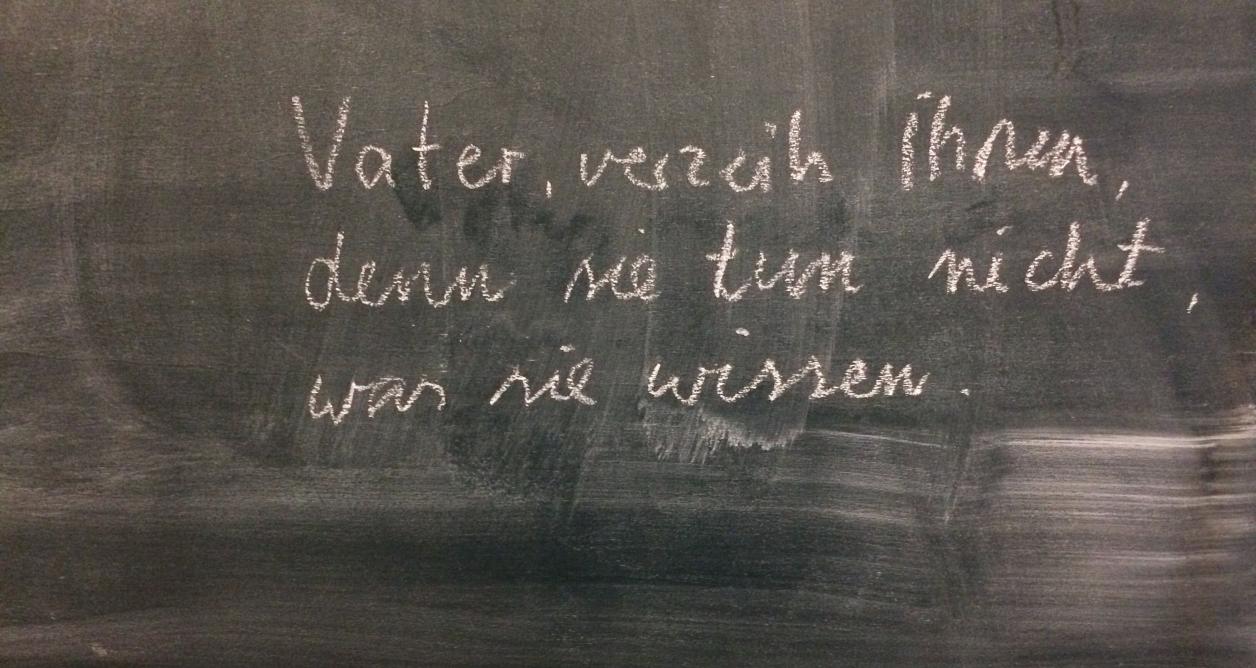 Vater, verzeih ihnen,
denn sie tun nicht,
was sie wissen.